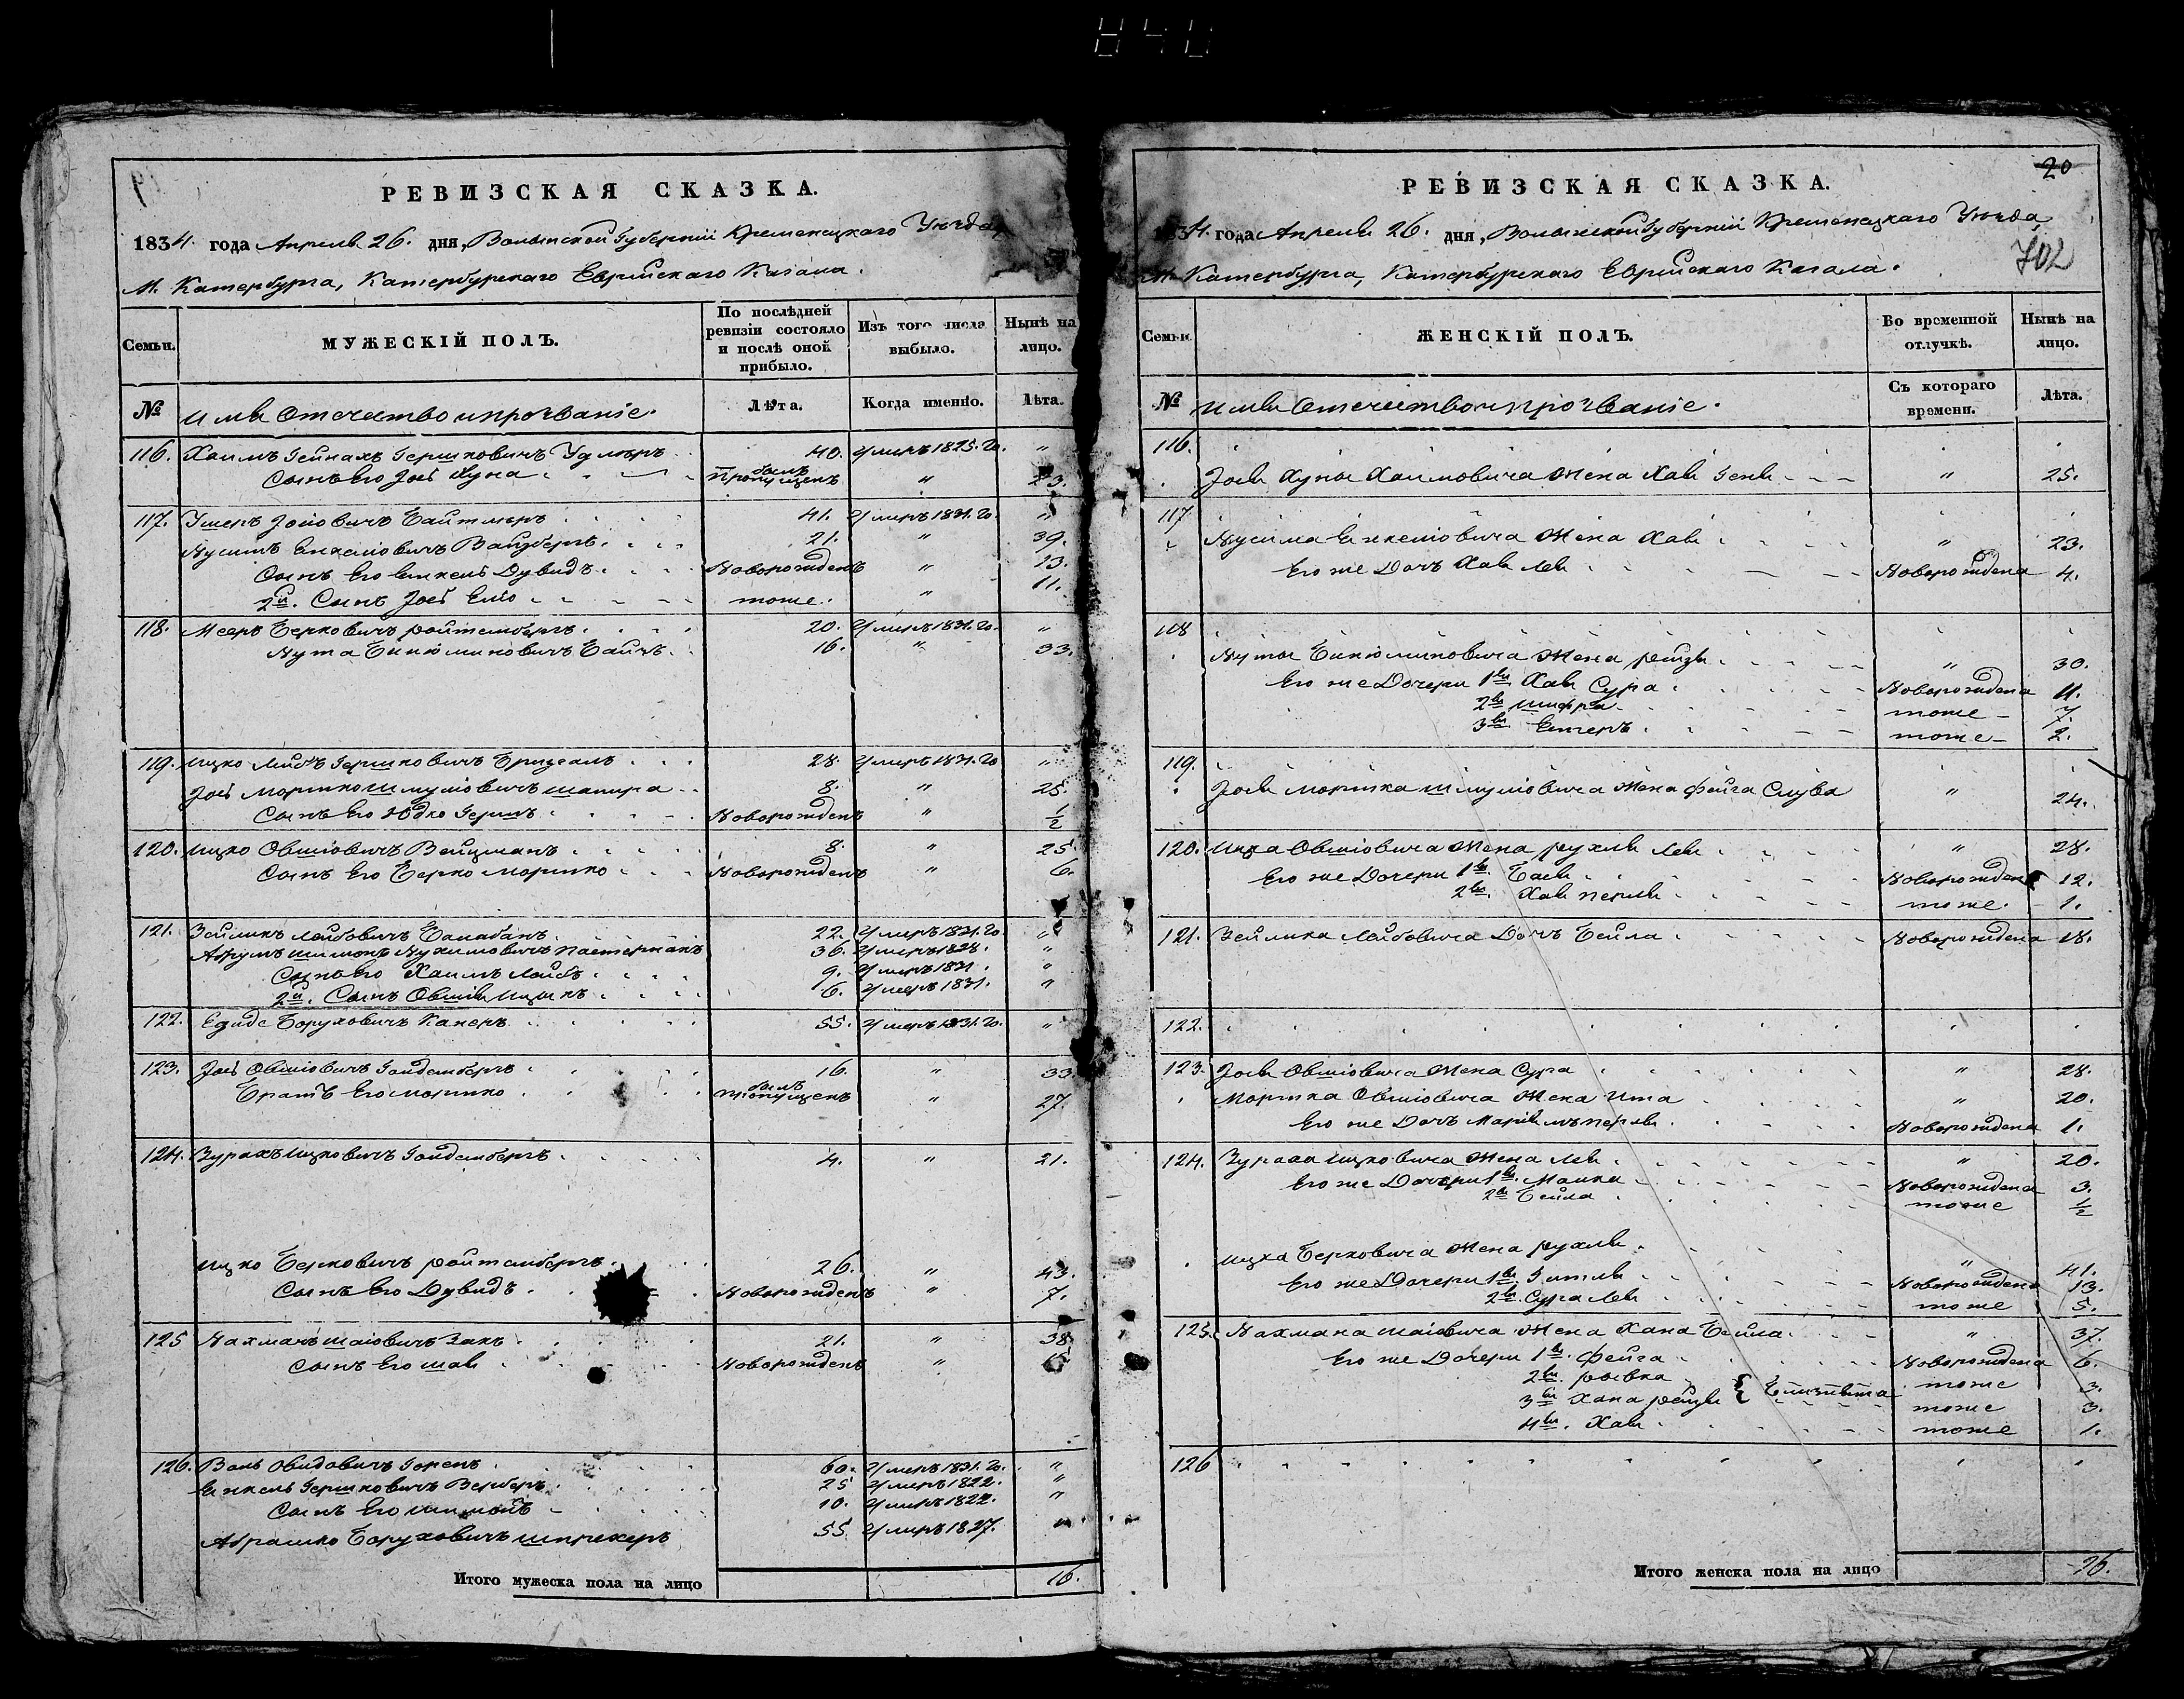 РЕВИЗСКАЯ СКАЗКА.
1834. года Апреля 26. дня, Волынской Губернии Кременецкаго Уезда,
М. Катербурга, Катербурскаго Еврейскаго Кагала.
Семьи.
МУЖЕСКІЙ ПОЛЪ.
По послѣдней ревизіи состояло и послѣ оной прибыло.
Изъ того числа выбыло.
Нынѣ на лицо.
№
Имя Отечество и прозваніе.
Лѣта.
Когда именно.
Лѣта.
116. Хаимъ Гейнахъ Гершковичъ 40. Умеръ 1825. го. "
Сынъ Его Јось Хуна былъ пропущенъ " 23.
117. Јоіовичъ 41. Умеръ 1831. го. "
Нусимъ Енкеліовичъ Вайзбергъ 21. " 39.
Сынъ Его Енкель Дувидъ Новорожденъ " 13.
2й. Сынъ Јось Еліо тоже. " 11.
118. Мееръ Берковичъ Ройтенбергъ 20. Умеръ 1831. го. "
Нута Бинюминовичъ 16. " 33.
119. Ицко Лейбъ Гершковичъ 28. Умеръ 1831. го "
Јось Моршко Шмуліовичъ Шапира 8. " 25.
Сынъ Его Юдко Гершъ Новорожденъ " ½
120. Ицко Овшіовичъ Вейцманъ 8. " 25.
Сынъ Его Берко Моршко Новорожденъ " 6.
121. Зейликъ Лейбовичъ Балабанъ 22. Умеръ 1831. го "
Абрумъ Шимонъ Нухимовичъ Пастернакъ 36. Умеръ 1828. "
Сынъ Его Хаимъ Лейбъ 9. Умеръ 1831. "
2й. Сынъ Овшія Ицыкъ 6. Умеръ 1831. "
122. Боруховичъ 55. Умеръ 1831. го. "
123. Јось Овшіовичъ Гольденбергъ 16. " 33.
Братъ Его Моршко былъ пропущенъ " 27.
124. Ицковичъ Гольденбергъ 4. " 21.
Ицко Берковичъ Ройтенбергъ 26. " 43.
Сынъ Его Дувидъ Новорожденъ " 7.
125 Нахманъ Шаіовичъ Закъ 21. " 38.
Сынъ Его Шая Новорожденъ "
126. Овидовичъ 60. Умеръ 1831. го. "
Енкель Гершковичъ Верберъ 25 Умеръ 1822. "
Сынъ Его 10. Умеръ 1822. "
Абрашко Боруховичъ Шпрехеръ 55. Умеръ 1827. "
Итого мужеска пола на лицо 16.
20
РЕВИЗСКАЯ СКАЗКА.
1834. года Апреля 26. дня, Волынской Губерніи Кременецкаго Уезда,
М. Катербурга, Катербурскаго Еврейскаго Кагала.
702
Семьи
ЖЕНСКІЙ ПОЛЪ.
Во временной отлучкѣ.
Нынѣ на лицо.
№
Имя Отечество и прозваніе.
Съ котораго времени.
Лѣта.
116.
Јося Хуны Хаимовича Жена Хая Геня " 25.
117
Нусима Енкеліовича Жена Хая " 23.
Его же Дочъ Хая Лея Новорождена 4.
118
Нуты Бинюминовича Жена Рейзя " 30.
Его же Дочери 1я Хая Сура Новорождена 11.
2я Шифра тоже 7.
3я Естеръ тоже 2.
119.
Јося Моршка Шмуліовича Жена Фейга Слува " 24.
120. Ицка Овшіовича Жена Рухля Лея " 28.
Его же Дочери 1я. Бася Новорождена 12.
2я. Хая Перля тоже. 1.
121. Зейлика Лейбовича Дочъ Бейла Новорождена 18.
122.
123. Јося Овшіовича Жена Сура " 28.
Моршка Овшіовича Жена Ита " 20.
Его же Дочъ Марьямъ Перля Новорождена 1.
124. Ицковича Жена Лея " 20.
Его же Дочери 1я. Малка Новорождена 3.
2я Бейла тоже ½
Ицка Берковича Жена Рухля " 41.
Его же Дочери 1я. Гитля Новорождена 13.
2я. Сура Лея тоже 5.
125. Нахмана Шаіовича Жена Хана Бейла " 37.
Его же Дочери 1я. Фейга Новорождена 6.
2я. Рывка тоже 3.
3я Хана Рейзя тоже 3.
4я. Хая тоже 1.
126
Итого женска пола на лицо 26.